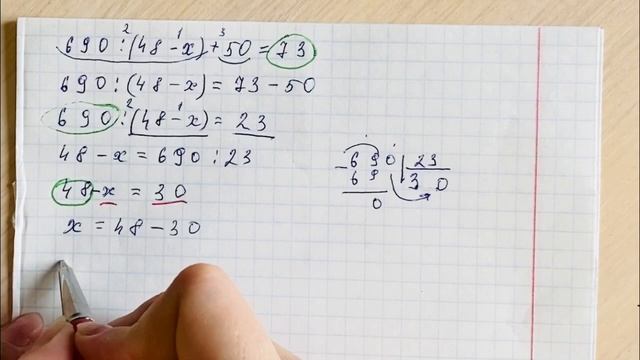 2 1 3
690 : (48 − x) + 50 = 73
690 : (48 − x) = 73 − 50
2 1
690 : (48 − x) = 23
48 − x = 690 : 23
48 − x = 30
x = 48 − 30
− 690 | 23
69 | 30
0